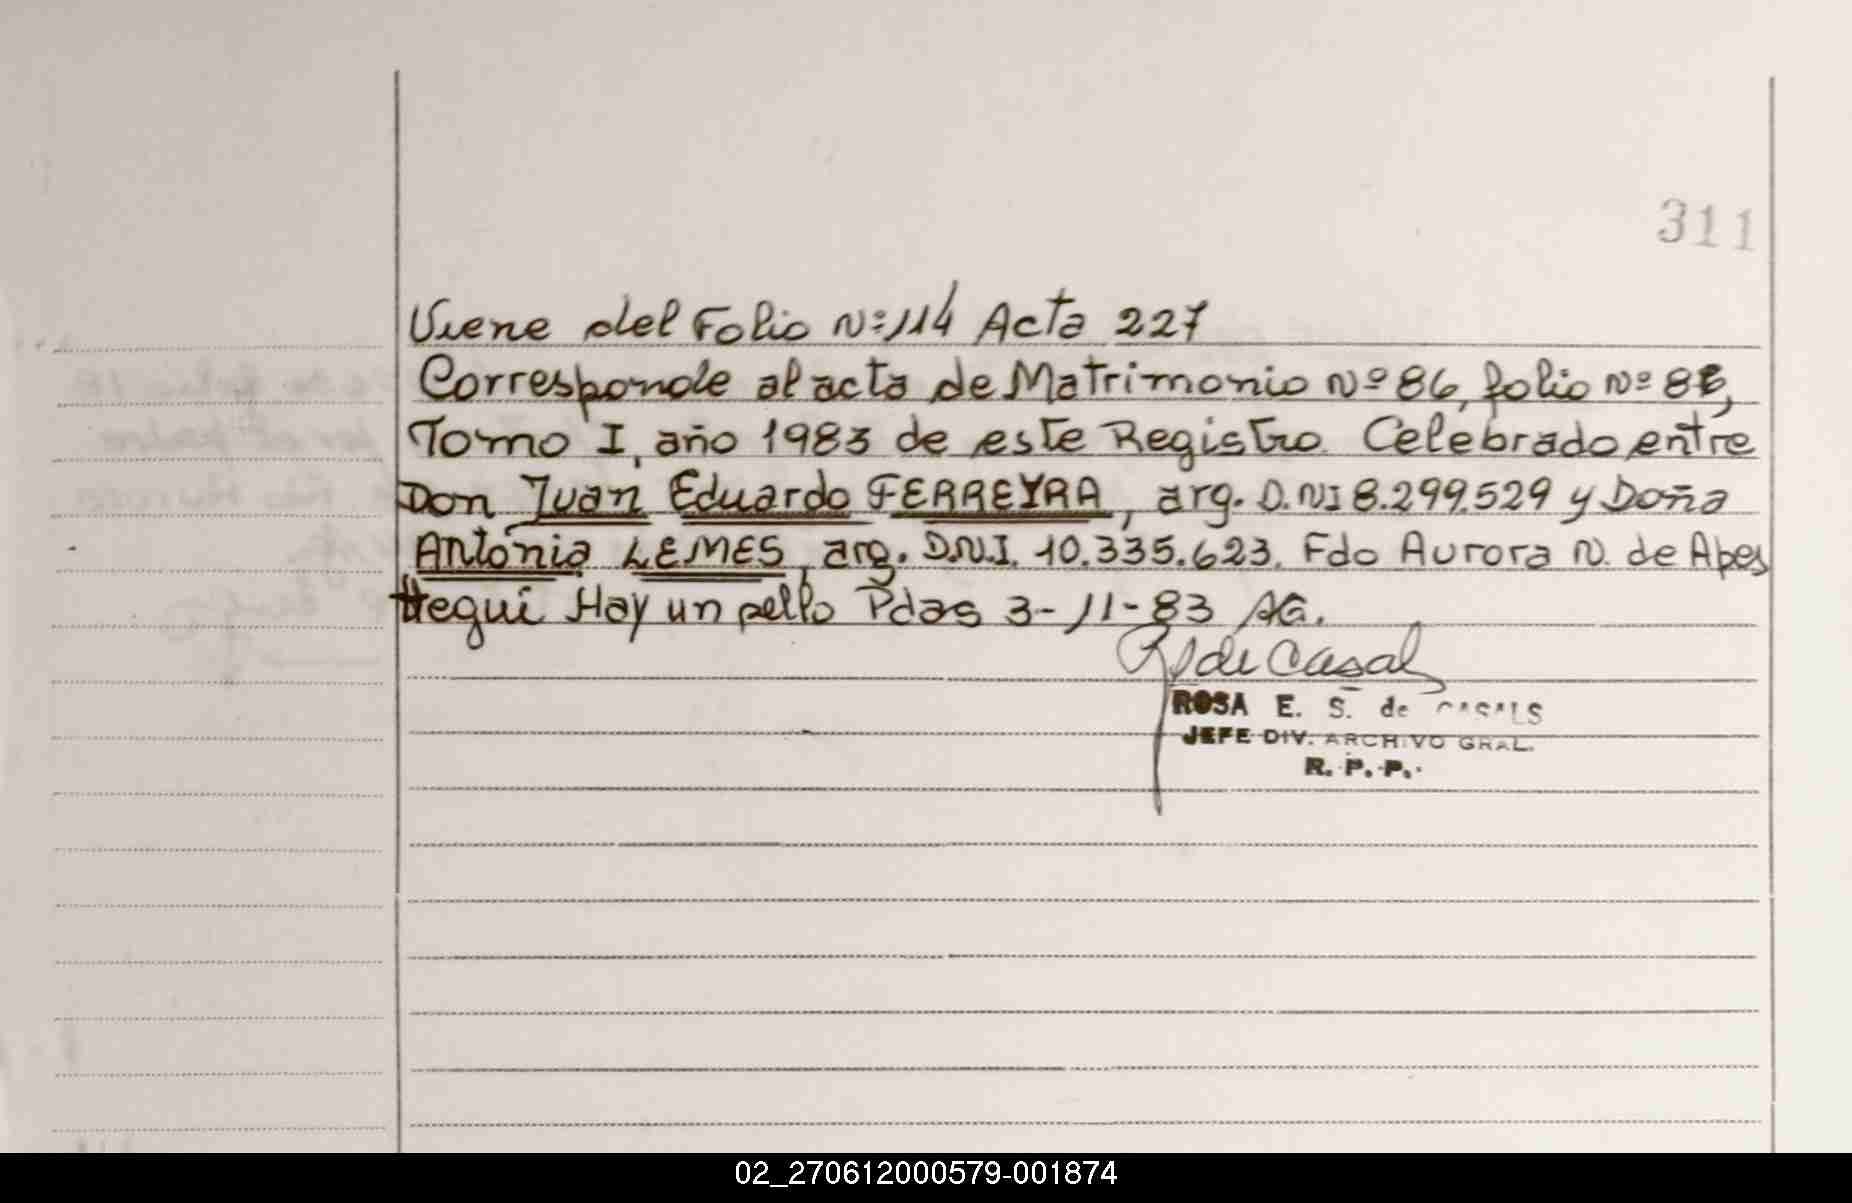 311
Viene del Folio Nº 114 Acta 227
Corresponde al acta de Matrimonio Nº 86, folio Nº
Tomo I, año 1983 de este Registro. Celebrado entre
Don Juan Eduardo FERREYRA, arg. D.NI 8.299.529 y Doña
Antonia LEMES, arg. D.N.I. 10.335.623. Fdo Aurora N. de Apes
tegui Hay un sello Pdas 3-11-83 AG.
R de Casals
ROSA E. S. de CASALS
JEFE DIV. ARCHIVO GRAL.
R. P. P.
02_270612000579-001874